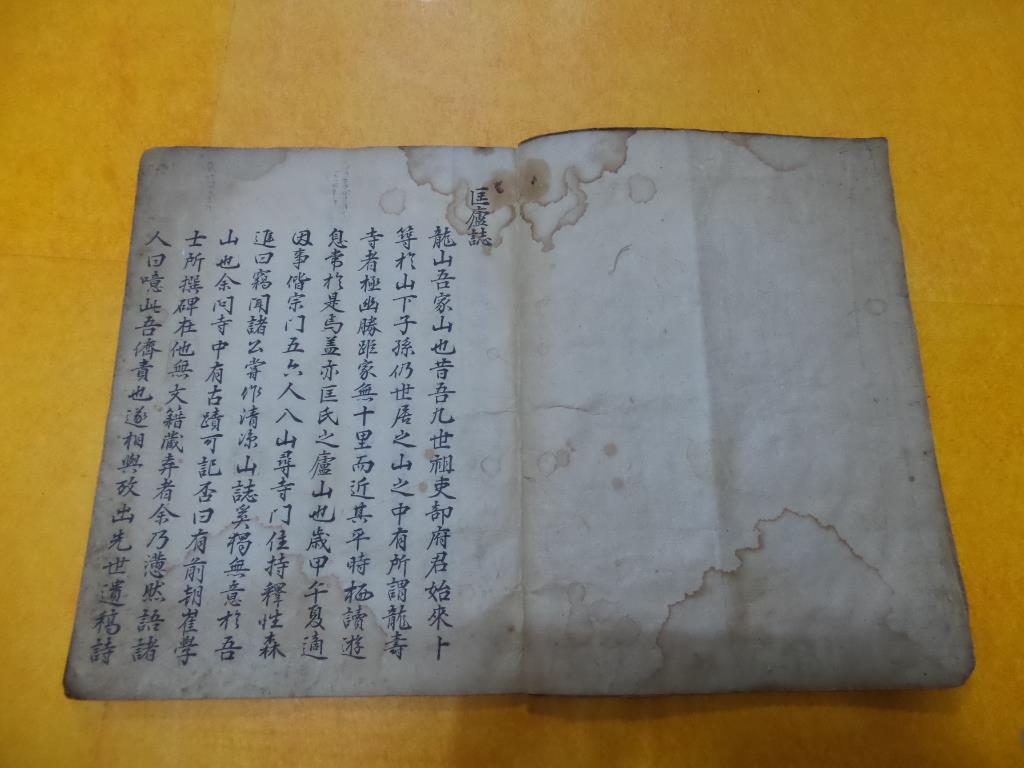 匡廬誌
龍山吾家山也昔吾九世祖吏部府君始來卜
築於山下子孫仍世居之山之中有所謂龍壽
寺者極幽勝距家無十里而近其平時栖讀遊
息常於是焉盖亦匡氏之廬山也歲甲午夏適
因事偕宗门五六人入山尋寺门住持釋性森
進曰竊聞諸公嘗作清凉山誌奚獨無意於吾
山也余问寺中有古蹟可記否曰有前朝崔學
士所撰碑在他無文籍藏弆者余乃慿然語諸
人曰噫此吾儕責也遂相與攷出先世遺稿詩